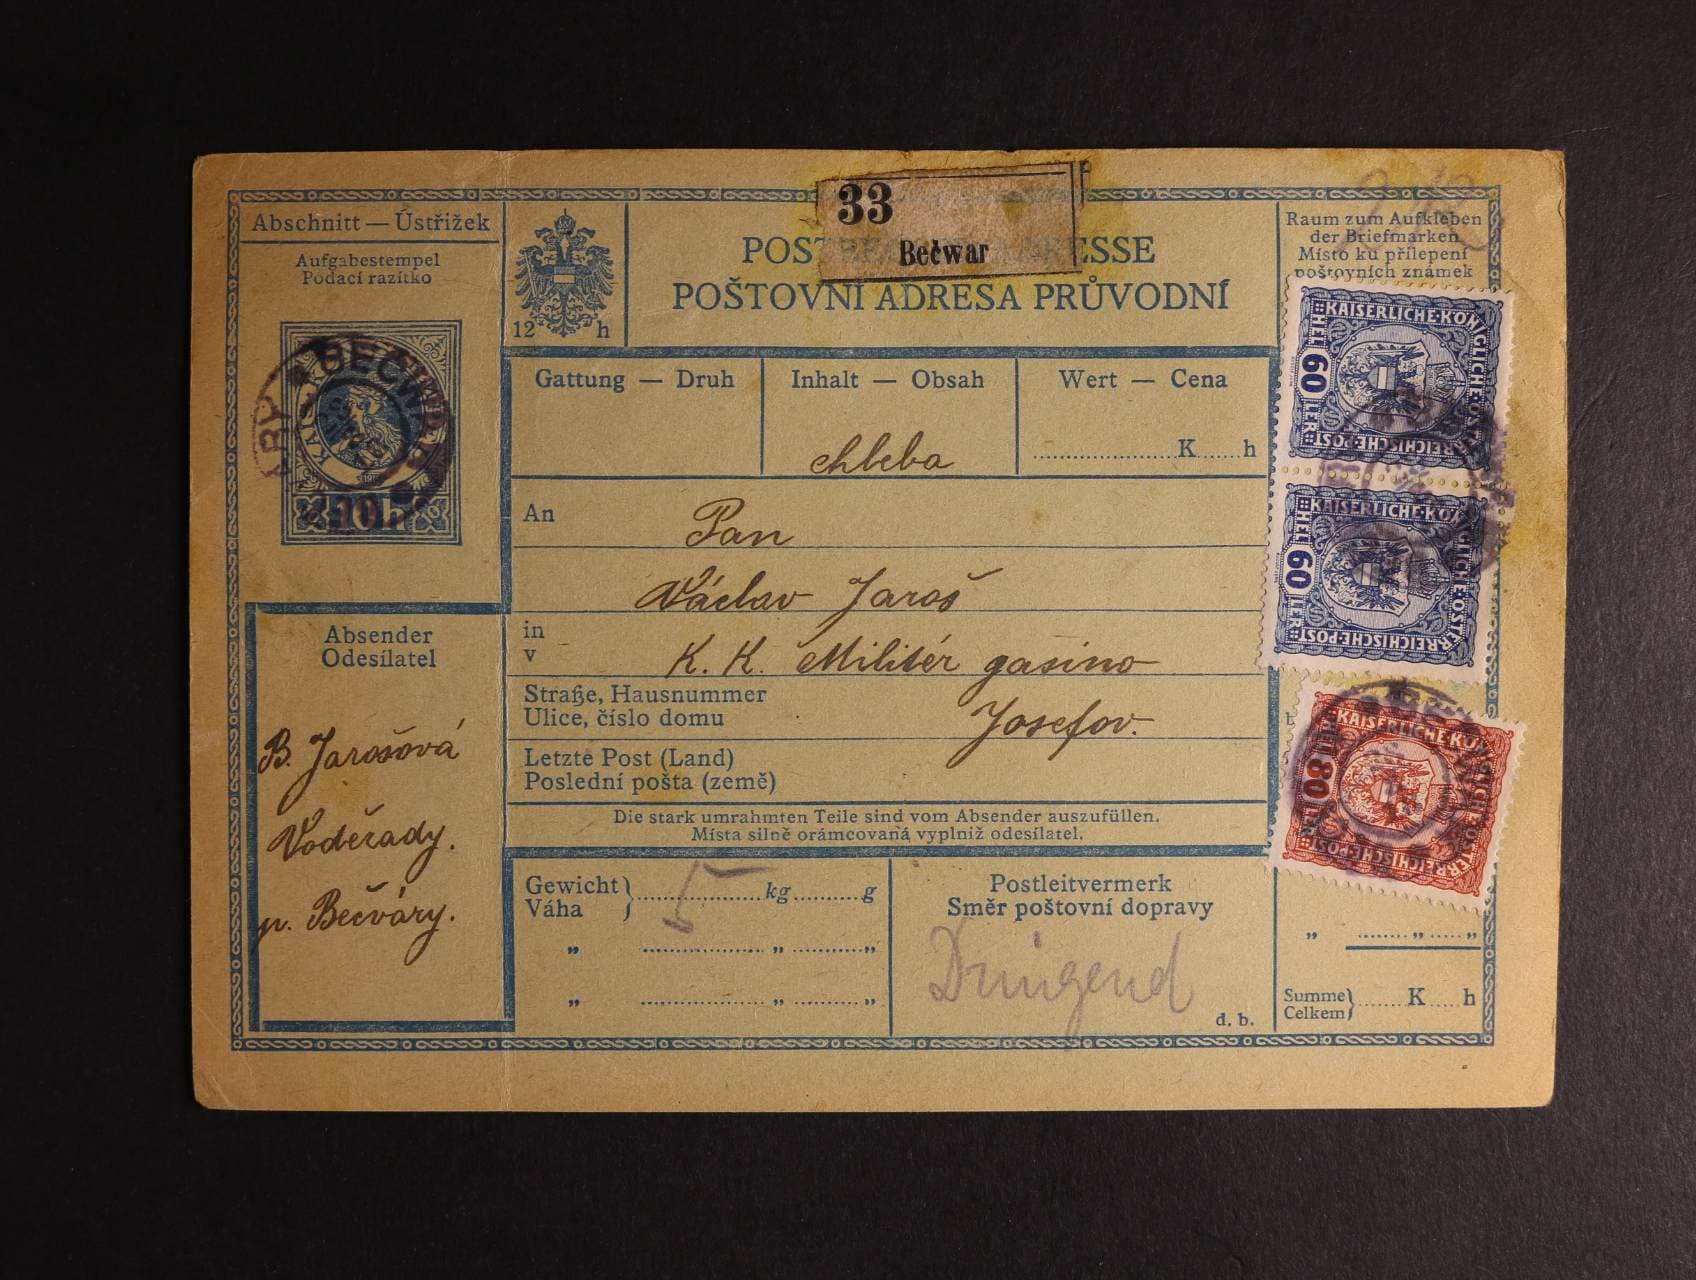 Abschnitt — Ústřižek
Aufgabestempel
Podací razítko
10 h
12 h
33
Bečwar
POŠTOVNÍ ADRESA PRŮVODNÍ
Raum zum Aufkleben
der Briefmarken
Místo ku přilepení
poštovních známek
Gattung — Druh
Inhalt — Obsah
chleba
Wert — Cena
K h
An
Pan
Václav Jaroš
in
v
K. K. Militér gasino
Straße, Hausnummer
Ulice, číslo domu
Josefov.
Letzte Post (Land)
Poslední pošta (země)
Die stark umrahmten Teile sind vom Absender auszufüllen.
Místa silně orámcovaná vyplniž odesílatel.
Absender
Odesílatel
B. Jarošová
Voděrady.
p. Bečváry.
Gewicht
Váha
5 kg g
„ „ „
„ „ „
Postleitvermerk
Směr poštovní dopravy
Dringend
d. b.
KAISERLICHE·KÖNIGLICHE·ÖSTERREICHISCHE·POST
60 HELLER
KAISERLICHE·KÖNIGLICHE·ÖSTERREICHISCHE·POST
60 HELLER
KAISERLICHE·KÖNIGLICHE·ÖSTERREICHISCHE·POST
80 HELLER
„ „ „
Summe
Celkem
K h